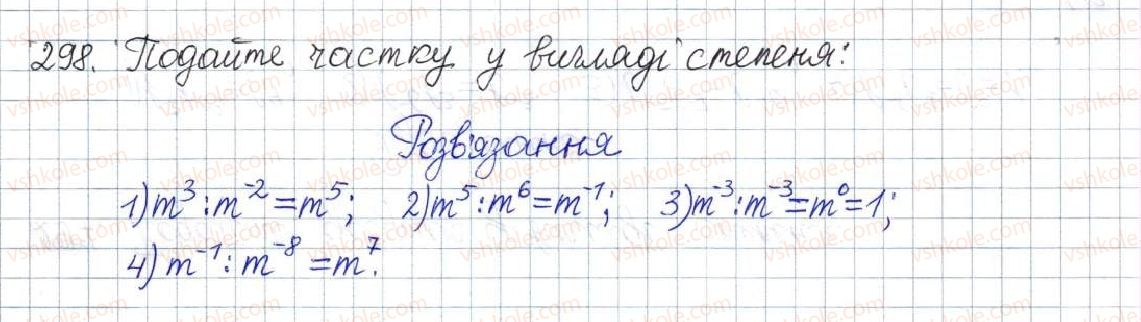 298. Подайте частку у вигляді степеня:
Розв'язання
1) m³ : m⁻² = m⁵; 2) m⁵ : m⁶ = m⁻¹; 3) m⁻³ : m⁻³ = m⁰ = 1;
4) m⁻¹ : m⁻⁸ = m⁷.